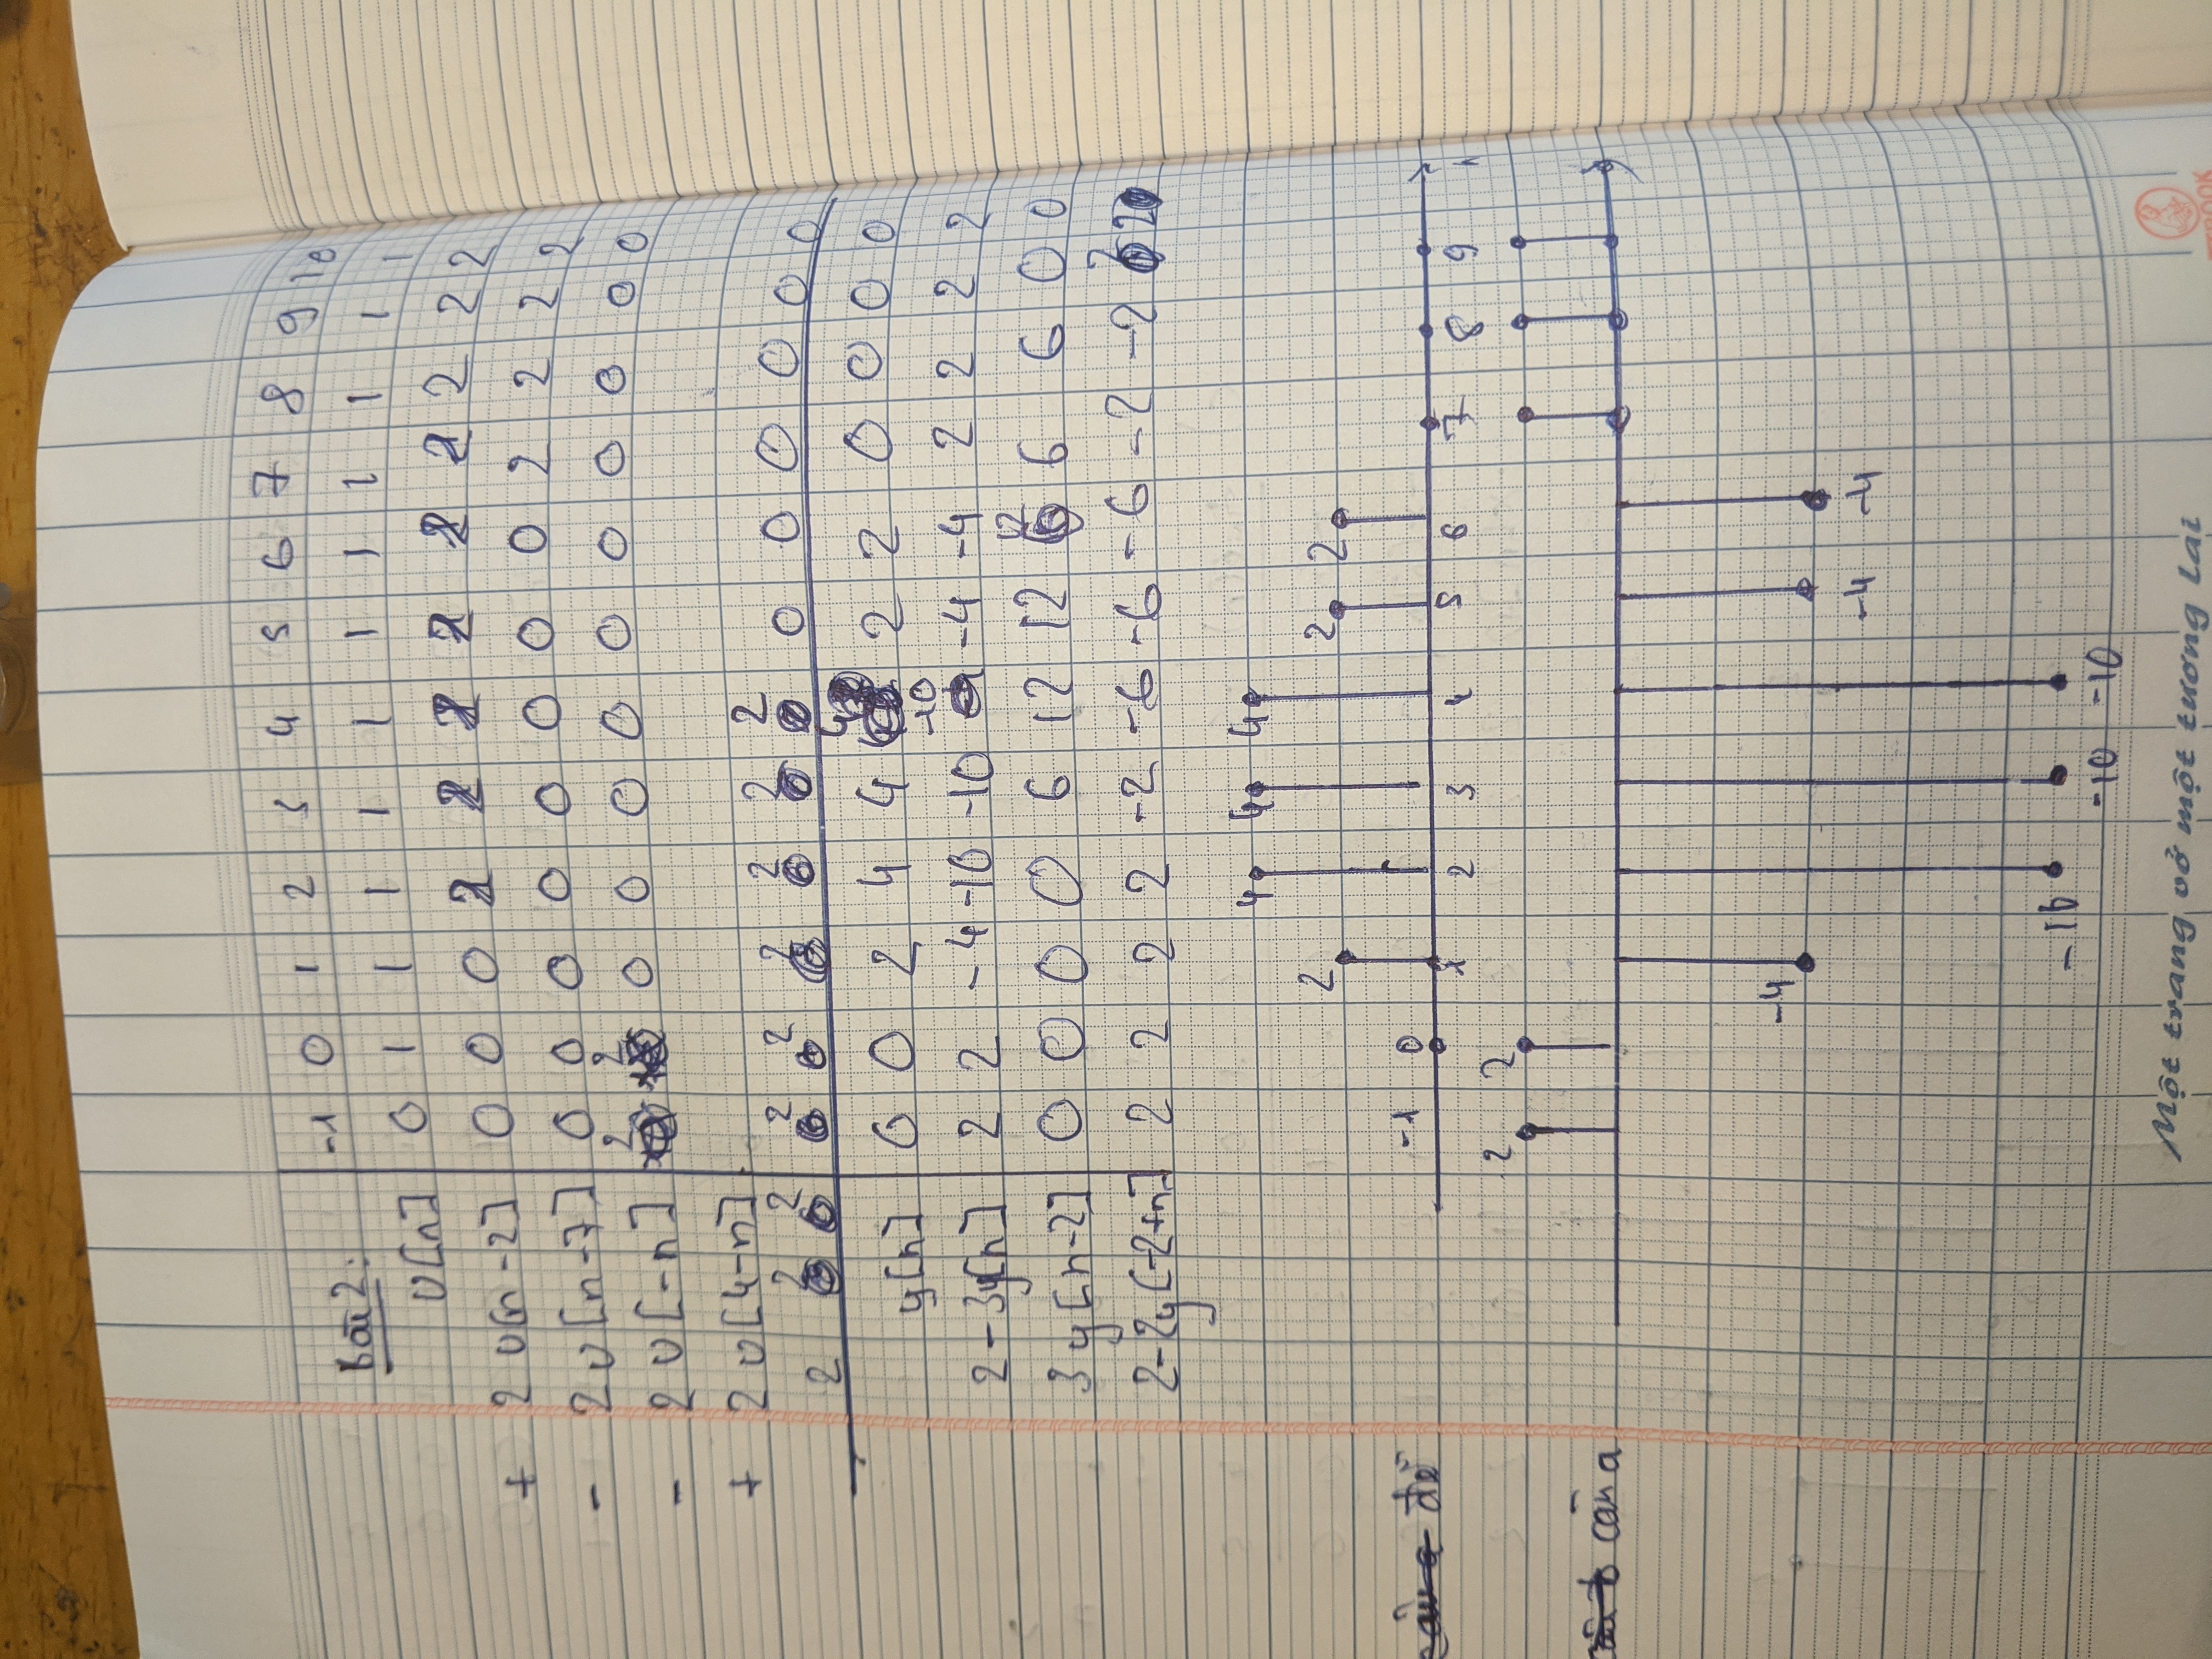 -1 0 1 2 3 4 5 6 7 8 9 10
Bài 2:
U[n] 0 1 1 1 1 1 1 1 1 1 1 1
+ 2 U[n-2] 0 0 0 2 2 2 2 2 2 2 2 2
- 2 U[n-7] 0 0 0 0 0 0 0 0 2 2 2 2
- 2 U[-n] 2 2 0 0 0 0 0 0 0 0 0 0
+ 2 U[4-n]
2 2 2 2 2 2 2 2 2 0 0 0 0 0 0
y[n] 0 0 2 4 4 4 2 2 0 0 0 0
2-3y[n] 2 2 -4 -10 -10 -10 -4 -4 2 2 2 2
3y[n-2] 0 0 0 0 6 12 12 12 6 6 0 0
2-2y[-2+n] 2 2 2 2 -2 -6 -6 -6 -2 -2 2 2
4 4 4
2 2 2
đề -1 0
1 2 3 4 5 6 7 8 9
2 2
câu a
-4
-4 -4
-10
-10 -10
Một trang vở một tương lai